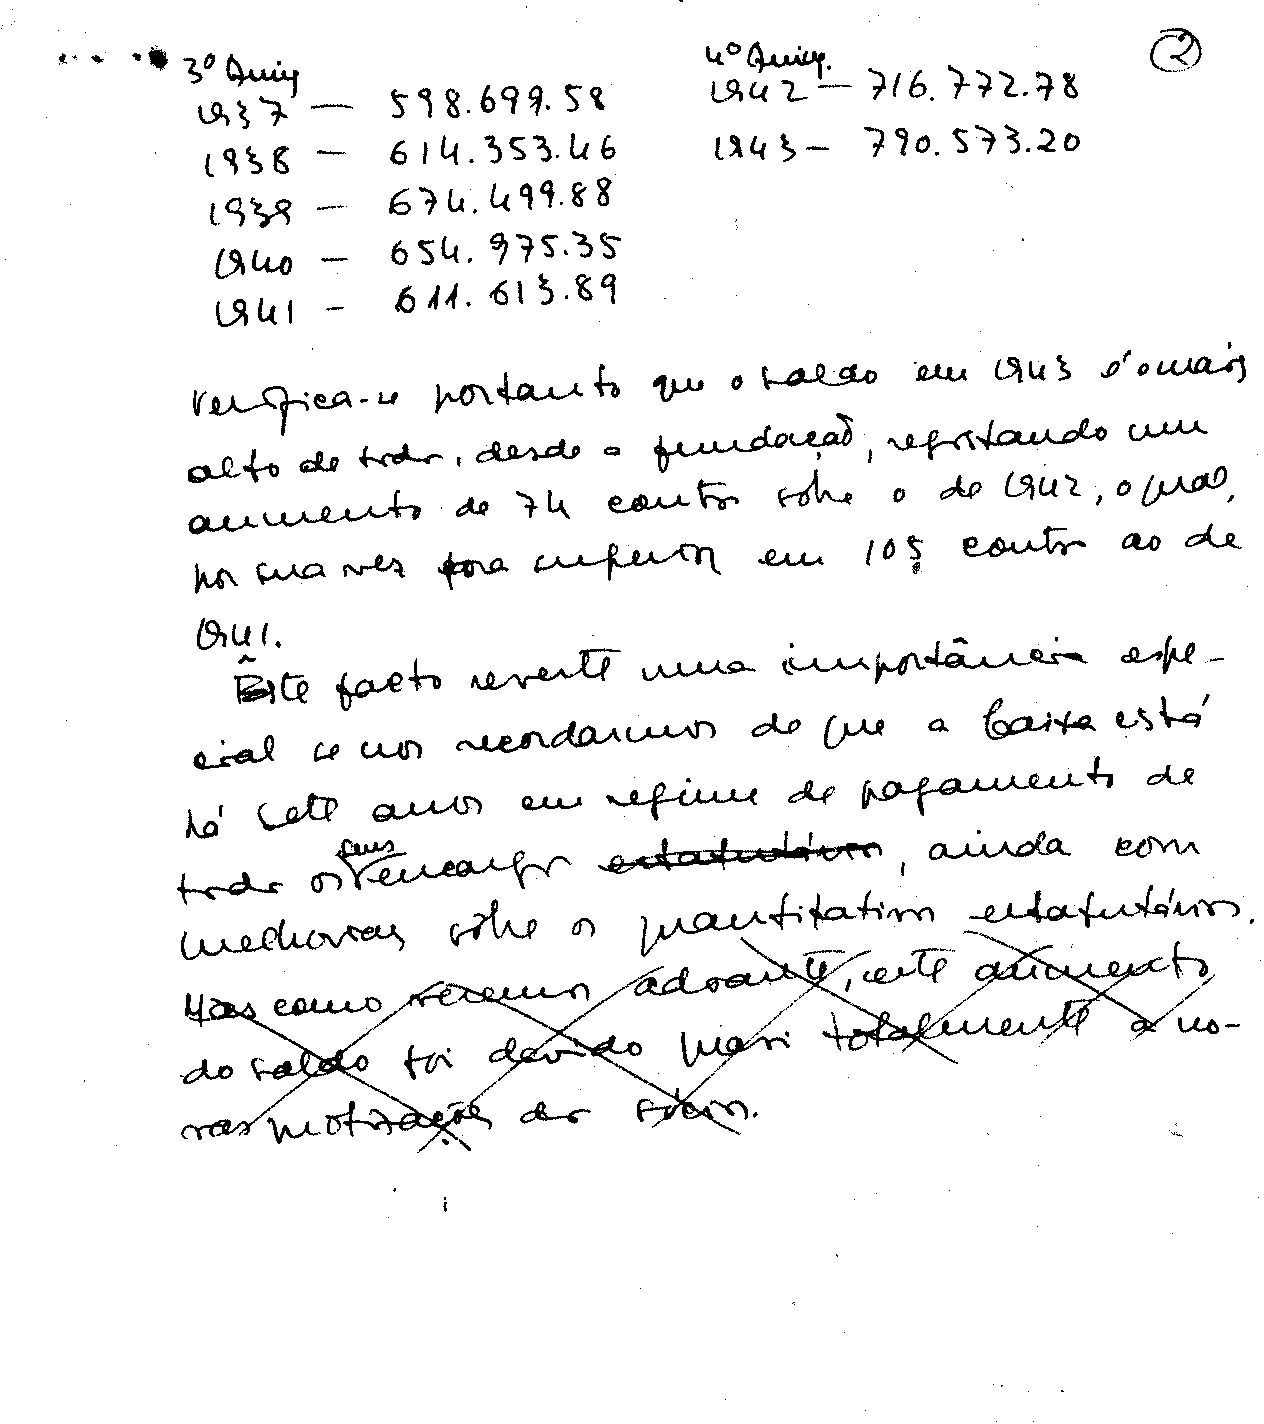 ②
3º Quinq
1937 — 598.699.58
1938 — 614.353.46
1939 — 674.499.88
1940 — 654.975.35
1941 - 611.613.89
4º Quinq.
1942 — 716.772.78
1943 — 790.573.20
Verifica-se portanto que o saldo em 1943 é o mais
alto de todos, desde a fundação, registando um
aumento de 74 contos sôbre o de 1942, o qual,
por sua vez fora superior em 105 contos ao de
1941.
Êste facto reveste uma importância espe-
cial se nos recordarmos de que a Caixa está
há sete anos em regime de pagamento de
todos os seus encargos estatutários, ainda com
melhorias sôbre os quantitativos estatutários.
Mas como veremos adeante, este aumento
do saldo foi devido quasi totalmente a no-
vas quotizações dos sócios.